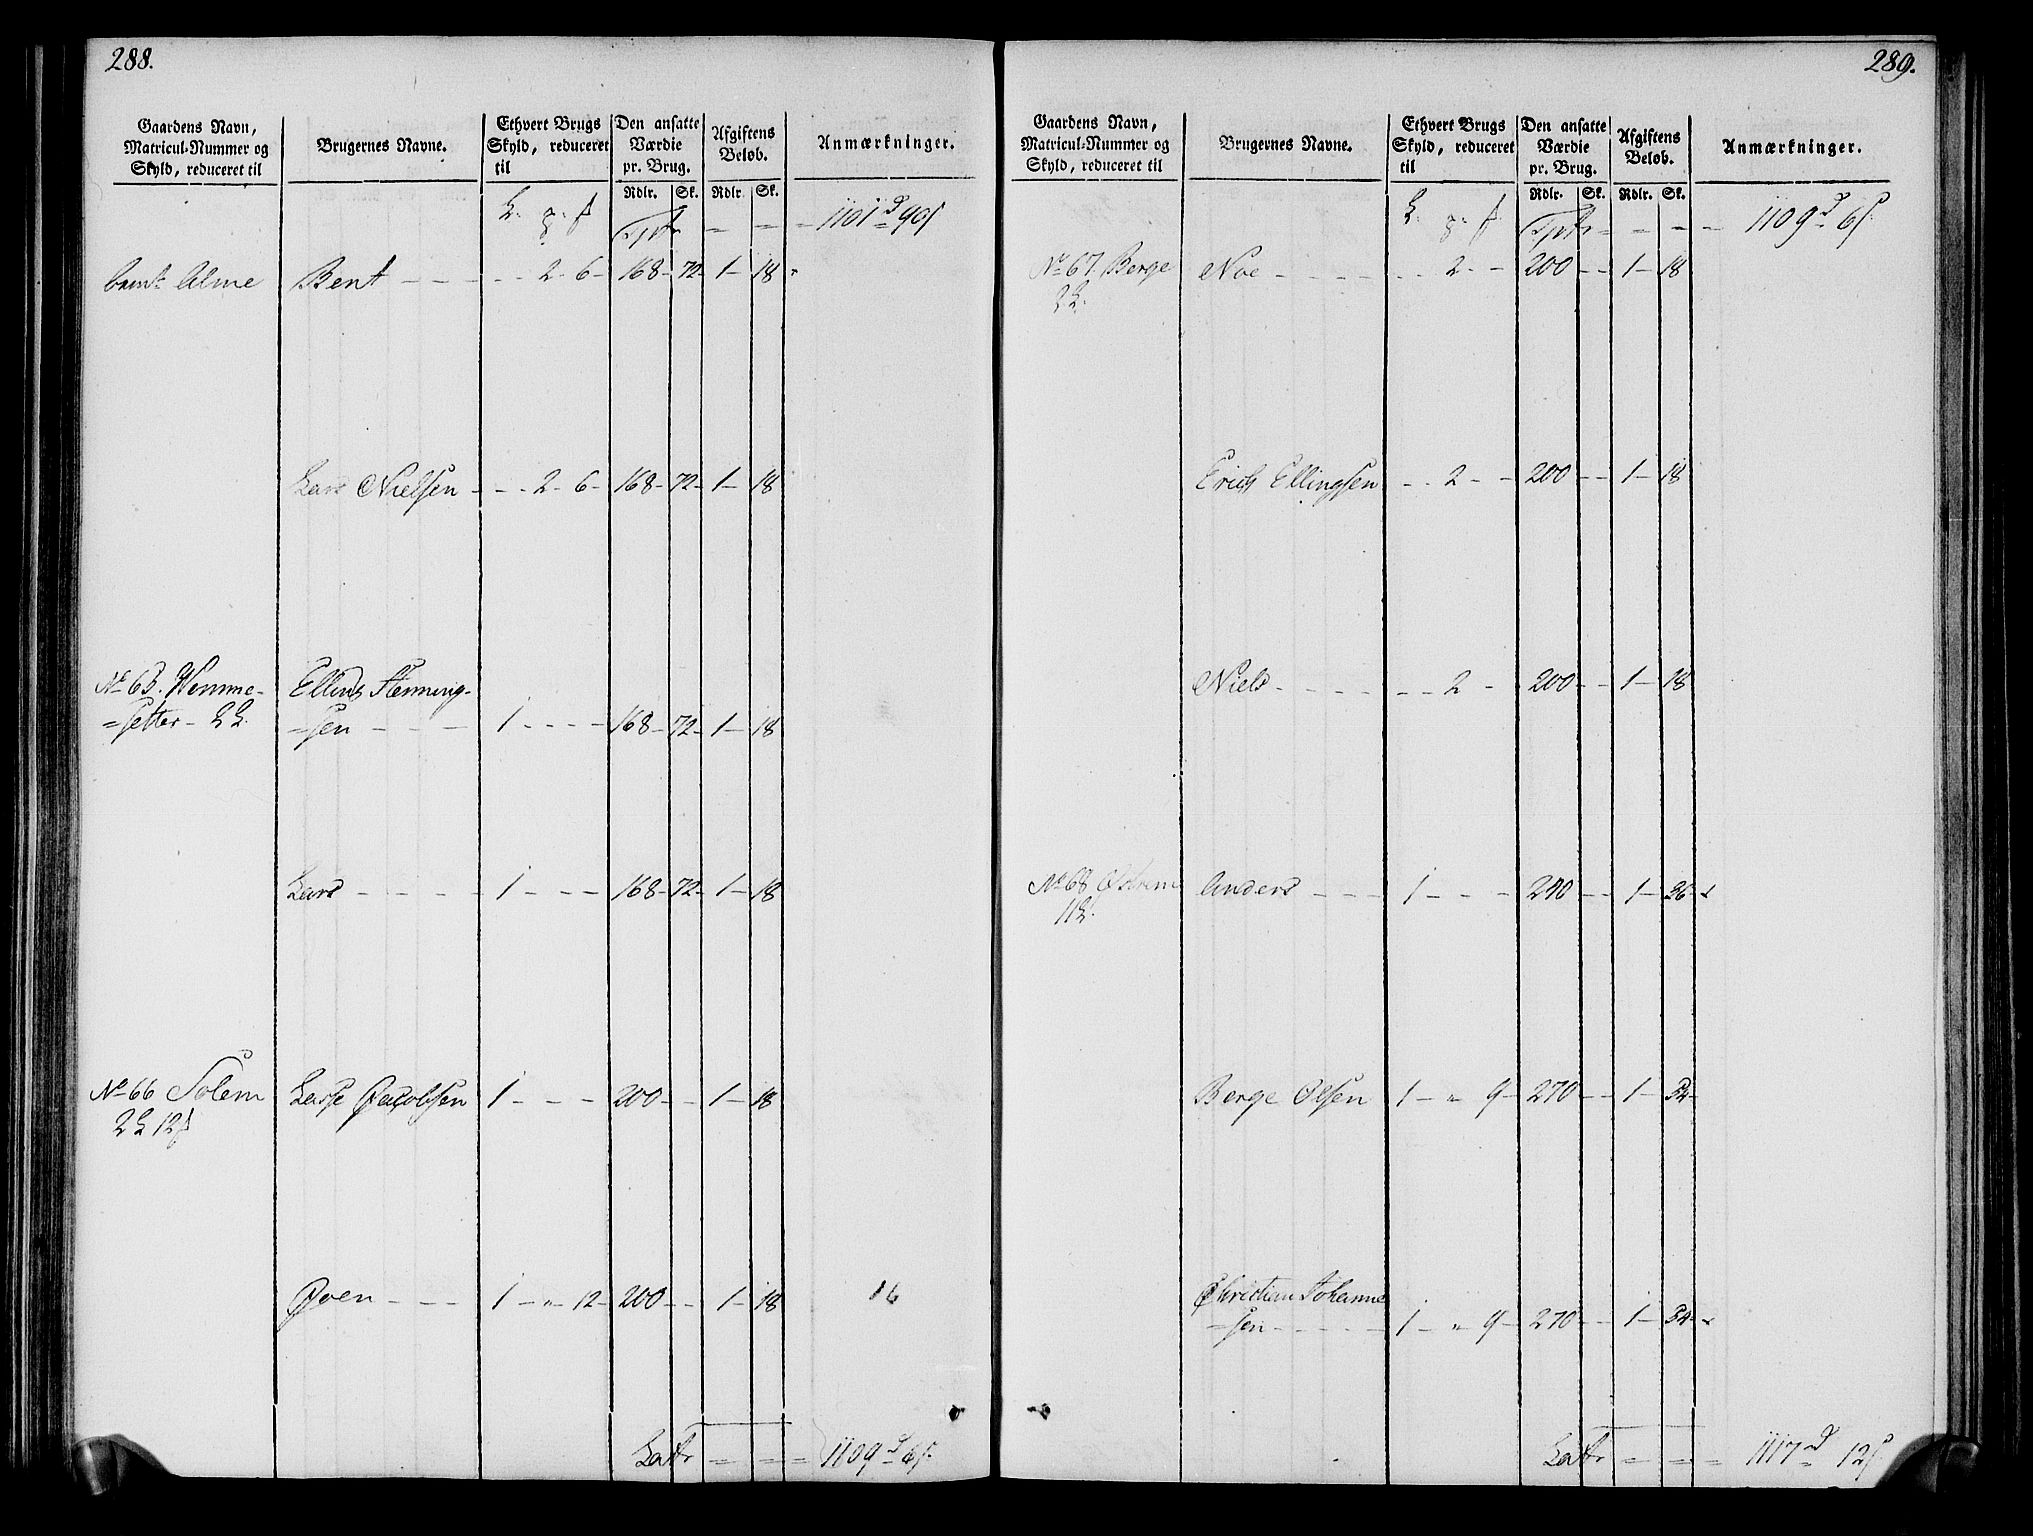 288.
Gaardens Navn, Matricul-Nummer og Skyld, reduceret til
Brugernes Navne.
Ethvert Brugs Skyld, reduceret til
Den ansatte Værdie pr. Brug.
Afgiftens Beløb.
Anmærkninger.
Rdlr. Sk. Rdlr. Sk.
1101 d 90 s
Alme Bent - - - - 2- 6- 168- 72- 1- 18
Lars Nielsen - - - 2- 6- 168- 72- 1- 18
No 63. Wemme- Ellend Flemming-
=setter - 2 L. =sen - - - 1 - - - - 168- 72- 1- 18
Lars - - - - 1 - - - - 168- 72- 1- 18
No 66 Solem Lasse Jacobsen 1 - - - 200 - - 1- 18
2 L 12 s
Iven - - - 1 - " 12- 200 - - 1- 18 16
Latr - - - 1109 d 6 s.
289.
Gaardens Navn, Matricul-Nummer og Skyld, reduceret til
Brugernes Navne.
Ethvert Brugs Skyld, reduceret til
Den ansatte Værdie pr. Brug.
Afgiftens Beløb.
Anmærkninger.
Rdlr. Sk. Rdlr. Sk.
1109 d 6 s.
No 67. Berge Noe - - - - - 2 - - 200 - - 1- 18
2 L.
Erich Ellingsen - - 2 - - 200 - - 1- 18
Niels - - - - - - 2 - 200 - - 1- 18
No 68 Anders - - - 1 - - - 240 - - 1- 36
11 L.
Berge Olsen 1 - " 9- 270 - - 1- 54
Christian Johanne
=sen - - - - 1 - " 9- 270 - - 1- 54
Latr - - - 1117 d 12 s.